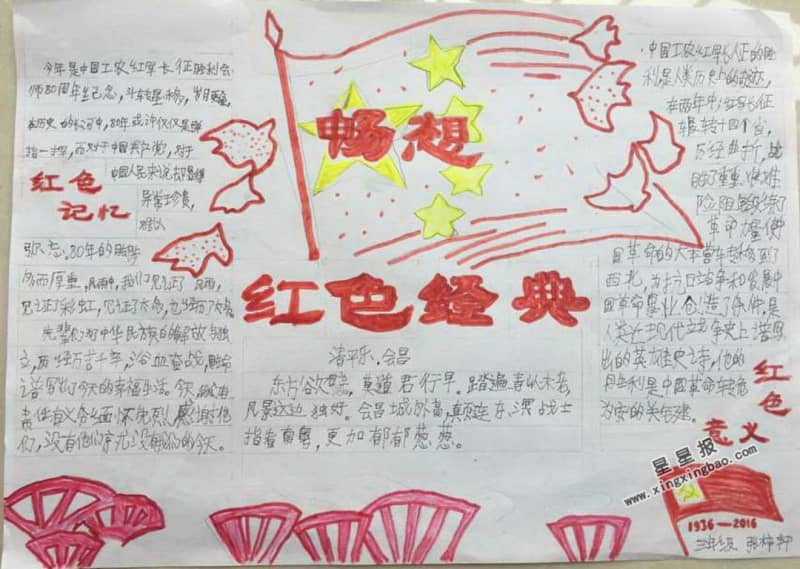 今年是中国工农红军长征胜利会
师80周年纪念，斗转星移，岁月
历史的 中，80年或许仅仅是弹
指一挥，而对于中国共产党，对于
中国人民来说却显得
异常珍贵，
难以
红色
记忆
忘。80年的
而厚重，我们见证了风雨，
见证了彩虹，见证了 ，也经历了
先辈们为中华民族的解放与独
立，历经万苦千辛，浴血奋战，
谱写出了今天的幸福生活。今天，
责任 缅怀先烈 感谢他
们，没有他们 就没有我们的今天。
畅想
红色经典
清平乐·会昌
东方欲晓，莫道君行早。踏遍青山人未老，
风景这边独好。会昌城外高 ，颠连 东溟战士
指看南粤，更加郁郁葱葱。
中国工农红军长征的胜
利是人类历史上的奇迹，
在两年中，红军长征
转十四个省，
历经曲折，战
胜了重重艰难
险阻
革命
国革命的大本营
西北，为抗日战争和发展中
国革命事业创造了条件，是
人类 现代战争史上谱写
出的英雄史诗，他的
胜利是中国革命转危
为安的关键。
红色
意义
星星报
www.xingxingbao.com
1936—2016
三年级 张